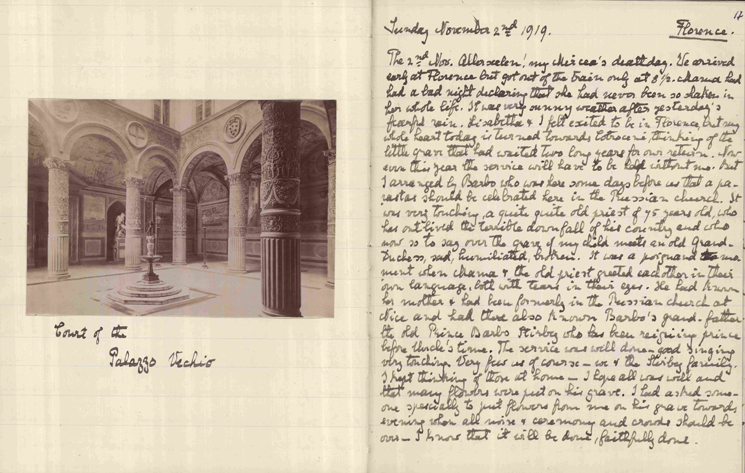 Court of the
Palazzo Vechio
17
Sunday November 2nd 1919.
Florence.
The 2nd Nov. Allerseelen! my Mircea's deathday. We arrived
early at Florence but got out of the train only at 8½. Chama had
had a bad night declaring that she had never been so shaken in
her whole life. It was very sunny weather after yesterday's
fearful rain. Lisabetha & I felt exited to be in Florence, but my
whole heart today is turned towards Cotroceni, thinking of the
little grave that had waited two long years for our return. Now
even this year the service will have to be held without me. But
I arranged by Barbo who was here some days before us that a pa-
rastas should be celebrated here in the Russian church. It
was very touching, a quite quite old priest of 75 years old, who
has out lived the terrible downfall of his country and who
now so to say over the grave of my child meets an old Grand-
Duchess, sad, humiliated, broken. It was a poignand mo-
ment when Chama & the old priest greeted each other in their
own language, both with tears in their eyes. He had known
her mother & had been formerly in the Russian church at
Nice and had there also known Barbo's grand-father
the old Prince Barbo Stirbey who has been reigning prince
before Uncle's time. The service was well done, good singing
very touching. Very few us of course - we & the Stirbey family.
I kept thinking of those at home - I hope all was well and
that many flowers were put on his grave. I had asked some-
one specially to put flowers from me on his grave towards
evening when all noise & ceremony and crowds should be
over - I know that it will be done, faithfully done.